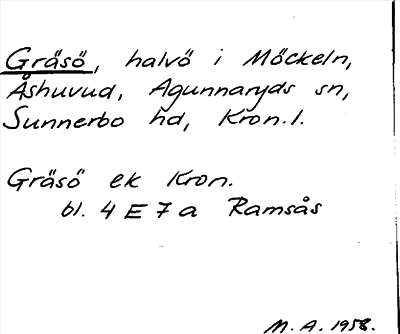 Gräsö, halvö i Möckeln,
Åshuvud, Agunnaryds sn,
Sunnerbo hd, Kron. l.
Gräsö ek Kron.
bl. 4 E 7 a Ramsås
M. A. 1958.